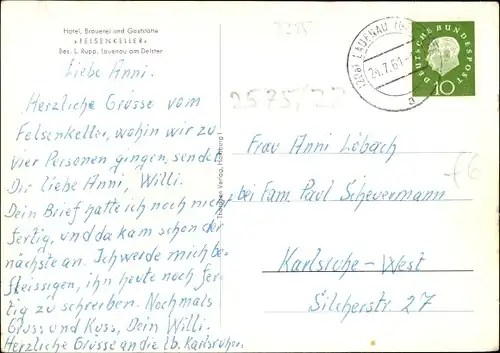 Hotel, Brauerei und Gaststätte
»FELSENKELLER«
Bes. L. Rupp, Lauenau am Deister
Liebe Anni.
Herzliche Grüsse vom
Felsenkeller, wohin wir zu
vier Personen gingen, sendet
Dir liebe Anni, Willi.
Dein Brief hatte ich noch nicht
fertig, und da kam schon der
nächste an. Ich werde mich be-
fleissigen, ihn heute noch fer-
tig zu schreiben. Nochmals
Gruss und Kuss, Dein Willi.
Herzliche Grüsse an die lb. Karlsruher.
Verlag, Hamburg
2575/22
LAUENAU
24.7.61
a
DEUTSCHE BUNDESPOST
10
Frau Anni Löbach
bei Fam. Paul Scheuermann
Karlsruhe-West
Silcherstr. 27